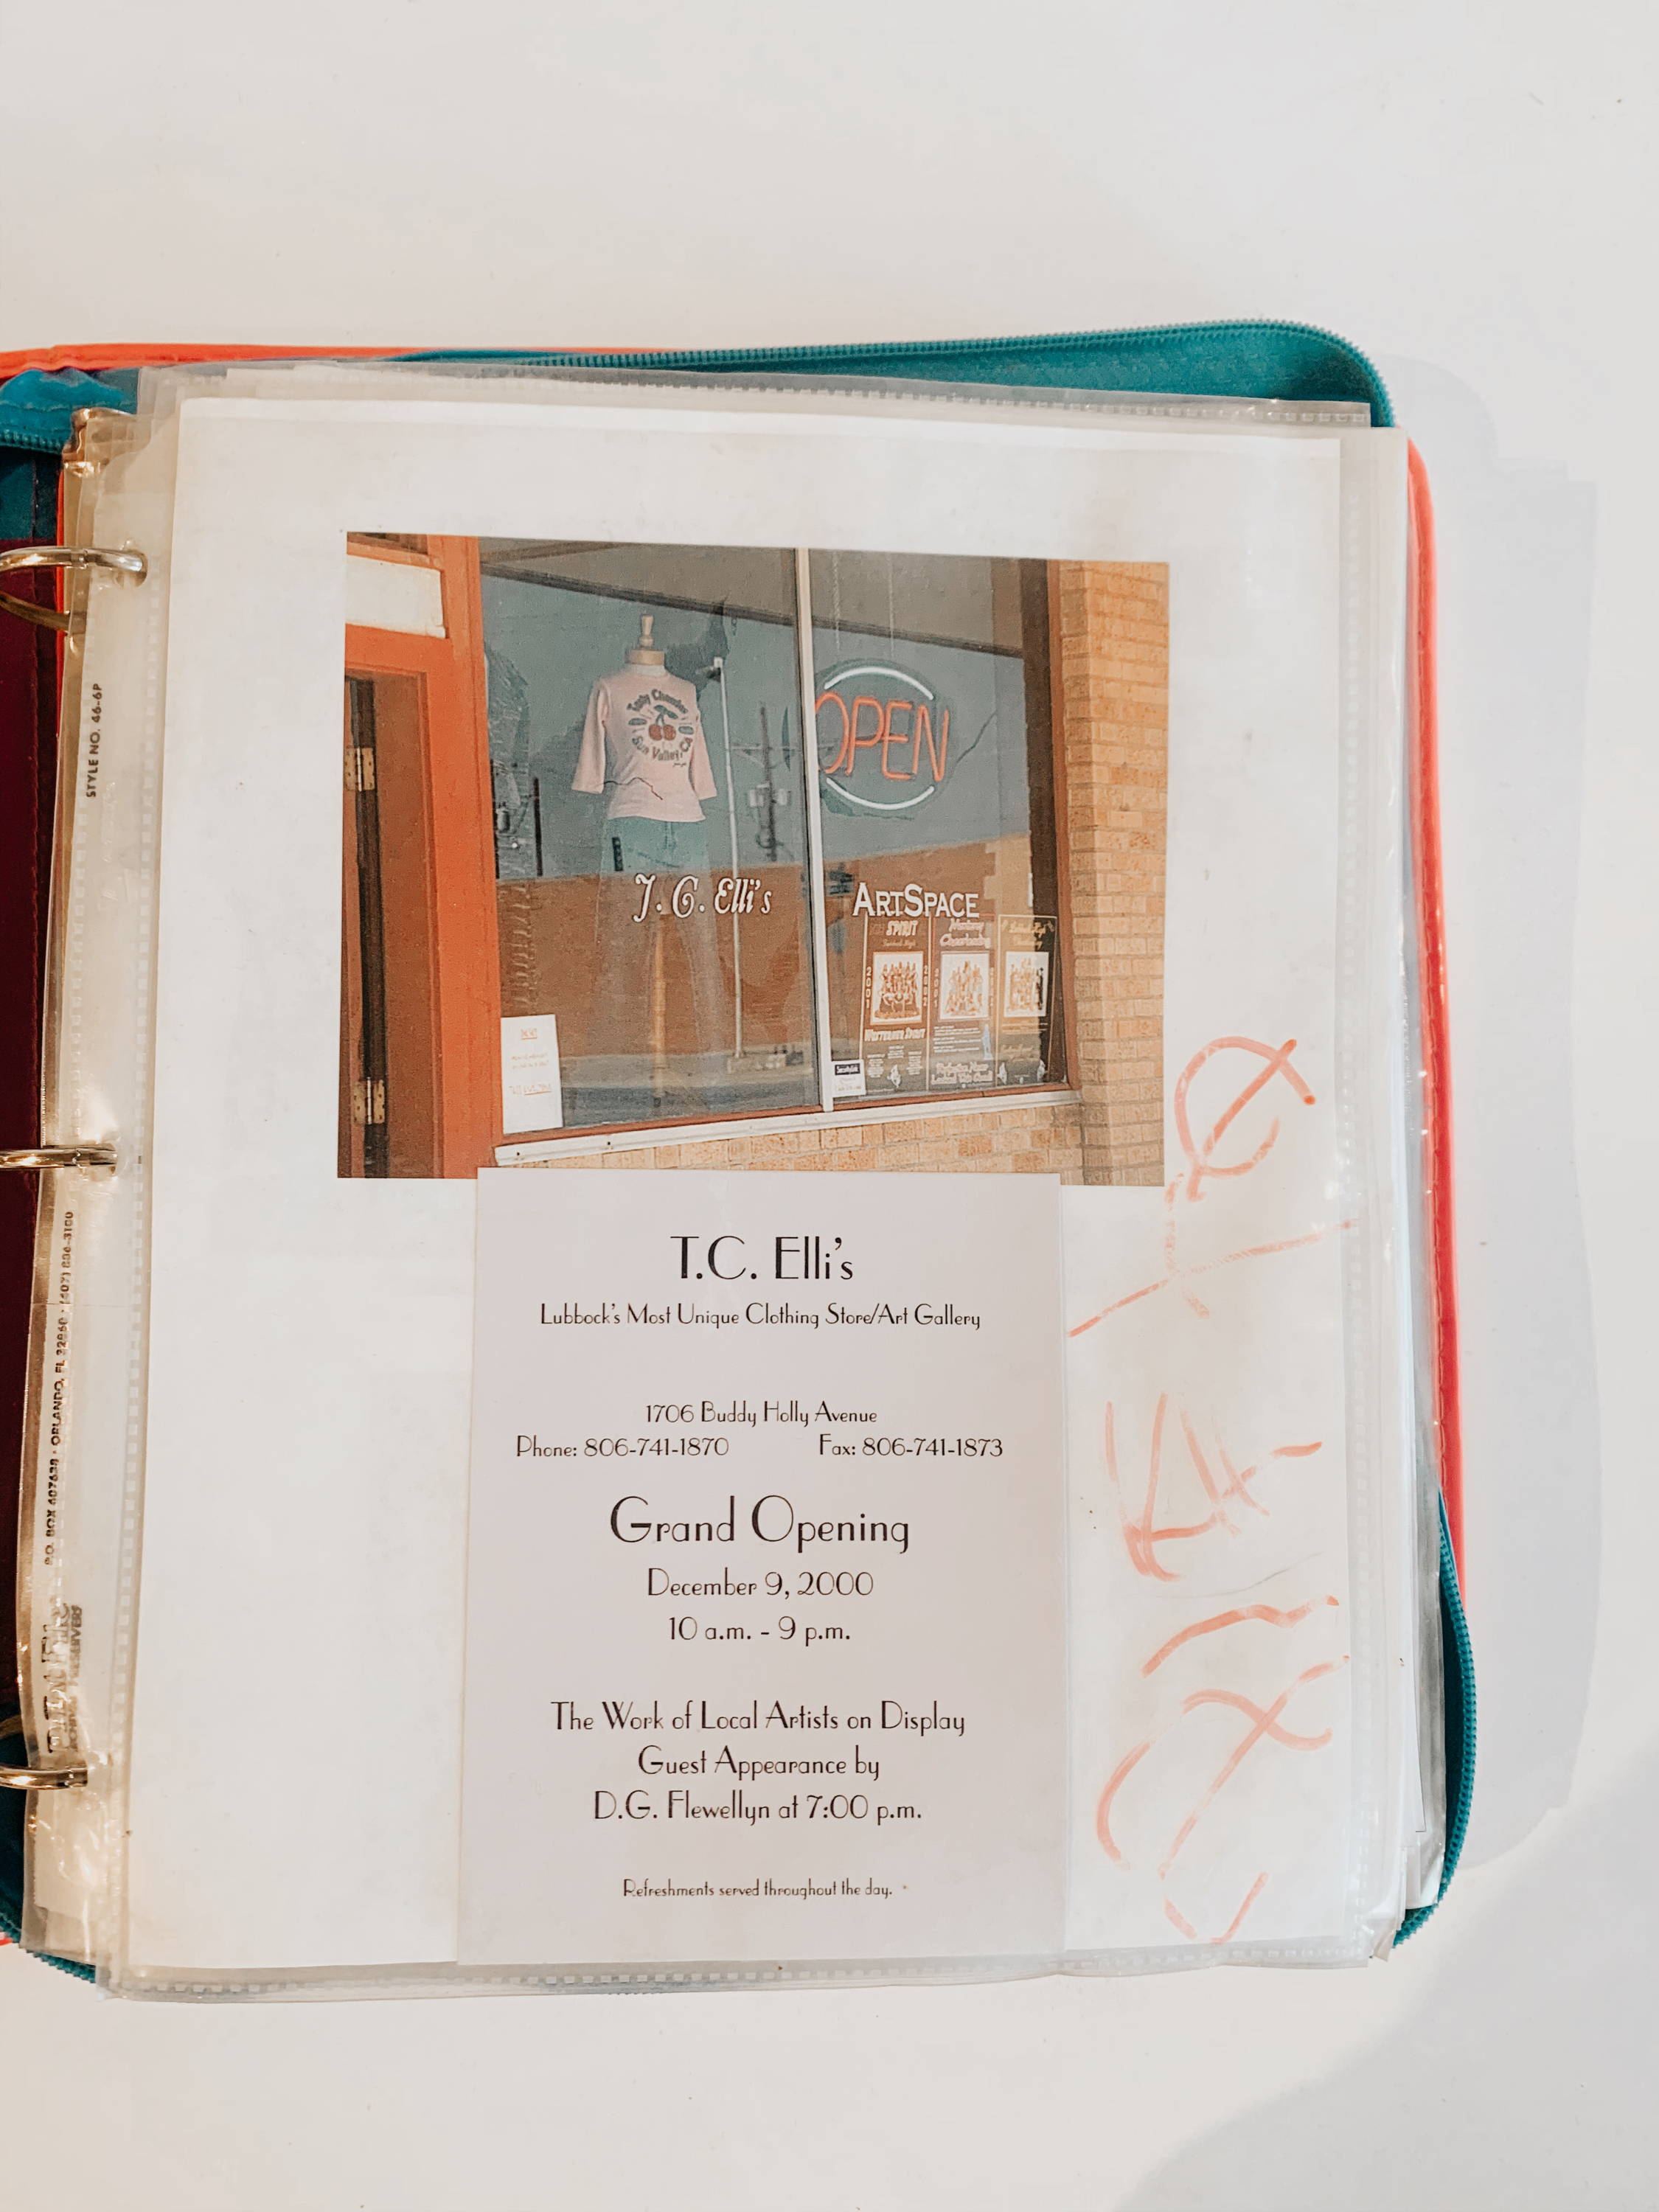 STYLE NO. 46-6P
P.O. BOX 607638 · ORLANDO, FL 32860 · (407) 886-3100
Tasty Cherries
Sun Valley, CA
OPEN
T. C. Elli's
ARTSPACE
SPIRIT
Mustang
Cheerleading
2001
2002
2001
WESTERNER SPIRIT
T.C. Elli's
Lubbock's Most Unique Clothing Store/Art Gallery
1706 Buddy Holly Avenue
Phone: 806-741-1870 Fax: 806-741-1873
Grand Opening
December 9, 2000
10 a.m. - 9 p.m.
The Work of Local Artists on Display
Guest Appearance by
D.G. Flewellyn at 7:00 p.m.
Refreshments served throughout the day.